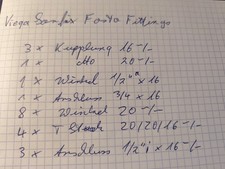 Viega Sanfix Fosta Fittings
3 x Kupplung 16 -/-
1 x dto 20 -/-
1 x Winkel 1/2" x 16
1 x Anschluss 3/4 x 16
8 x Winkel 20 -/-
4 x T Stück 20/20/16 -/-
3 x Anschluss 1/2"i x 16 -/-